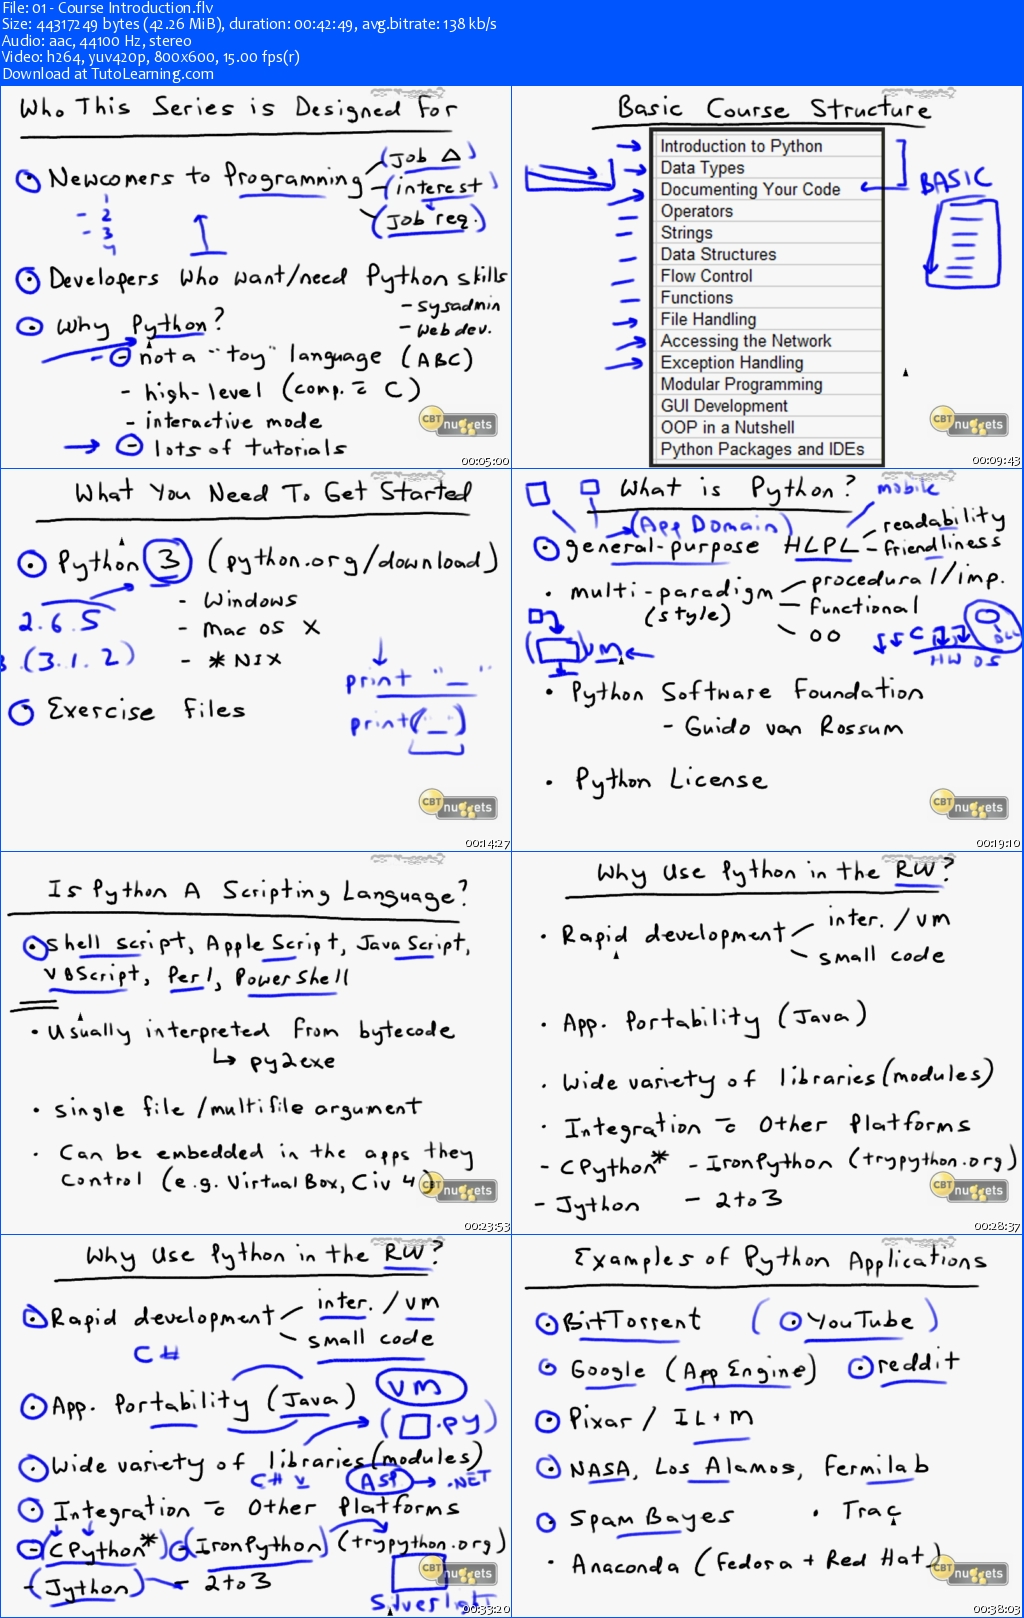 File: 01 - Course Introduction.flv
Size: 44317249 bytes (42.26 MiB), duration: 00:42:49, avg.bitrate: 138 kb/s
Audio: aac, 44100 Hz, stereo
Video: h264, yuv420p, 800x600, 15.00 fps(r)
Download at TutoLearning.com
Who This Series is Designed For
Newcomers to Programming
(Job Δ)
(interest)
(Job req.)
1
- 2
- 3
4
Developers who want/need Python skills
- sysadmin
- web dev.
Why Python?
- not a "toy" language (ABC)
- high-level (comp. c̄ C)
- interactive mode
- lots of tutorials
CBT nuggets
00:05:00
Basic Course Structure
Introduction to Python
Data Types
Documenting Your Code
Operators
Strings
Data Structures
Flow Control
Functions
File Handling
Accessing the Network
Exception Handling
Modular Programming
GUI Development
OOP in a Nutshell
Python Packages and IDEs
BASIC
CBT nuggets
00:09:43
What You Need To Get Started
Python 3 (python.org/download)
2.6.5
(3.1.2)
- Windows
- Mac OS X
- *NIX
print "_"
print(_)
Exercise Files
CBT nuggets
00:14:27
What is Python?
mobile
(App Domain)
general-purpose HLPL
- readability
- friendliness
• multi-paradigm
(style)
- procedural/imp.
- functional
- OO
vm
C
HW OS
• Python Software Foundation
- Guido van Rossum
• Python License
CBT nuggets
00:19:10
Is Python A Scripting Language?
• shell script, AppleScript, JavaScript,
VBScript, Perl, PowerShell
• Usually interpreted from bytecode
↳ py2exe
• single file/multifile argument
• Can be embedded in the apps they
control (e.g. VirtualBox, Civ 4)
CBT nuggets
00:23:53
Why Use Python in the RW?
• Rapid development
- inter./vm
- small code
• App. Portability (Java)
• Wide variety of libraries (modules)
• Integration c̄ Other Platforms
- CPython* - IronPython (trypython.org)
- Jython - 2to3
CBT nuggets
00:28:37
Why Use Python in the RW?
• Rapid development
- inter./vm
- small code
C#
• App. Portability (Java)
VM
(□.py)
• Wide variety of libraries (modules)
C# V
ASP → .NET
• Integration c̄ Other Platforms
- (CPython*) - (IronPython) (trypython.org)
- (Jython) - 2to3
Silverlight
CBT nuggets
00:33:20
Examples of Python Applications
• BitTorrent (• YouTube)
• Google (App Engine) • reddit
• Pixar / IL+M
• NASA, Los Alamos, Fermilab
• SpamBayes • Trac
• Anaconda (Fedora + Red Hat)
CBT nuggets
00:38:03